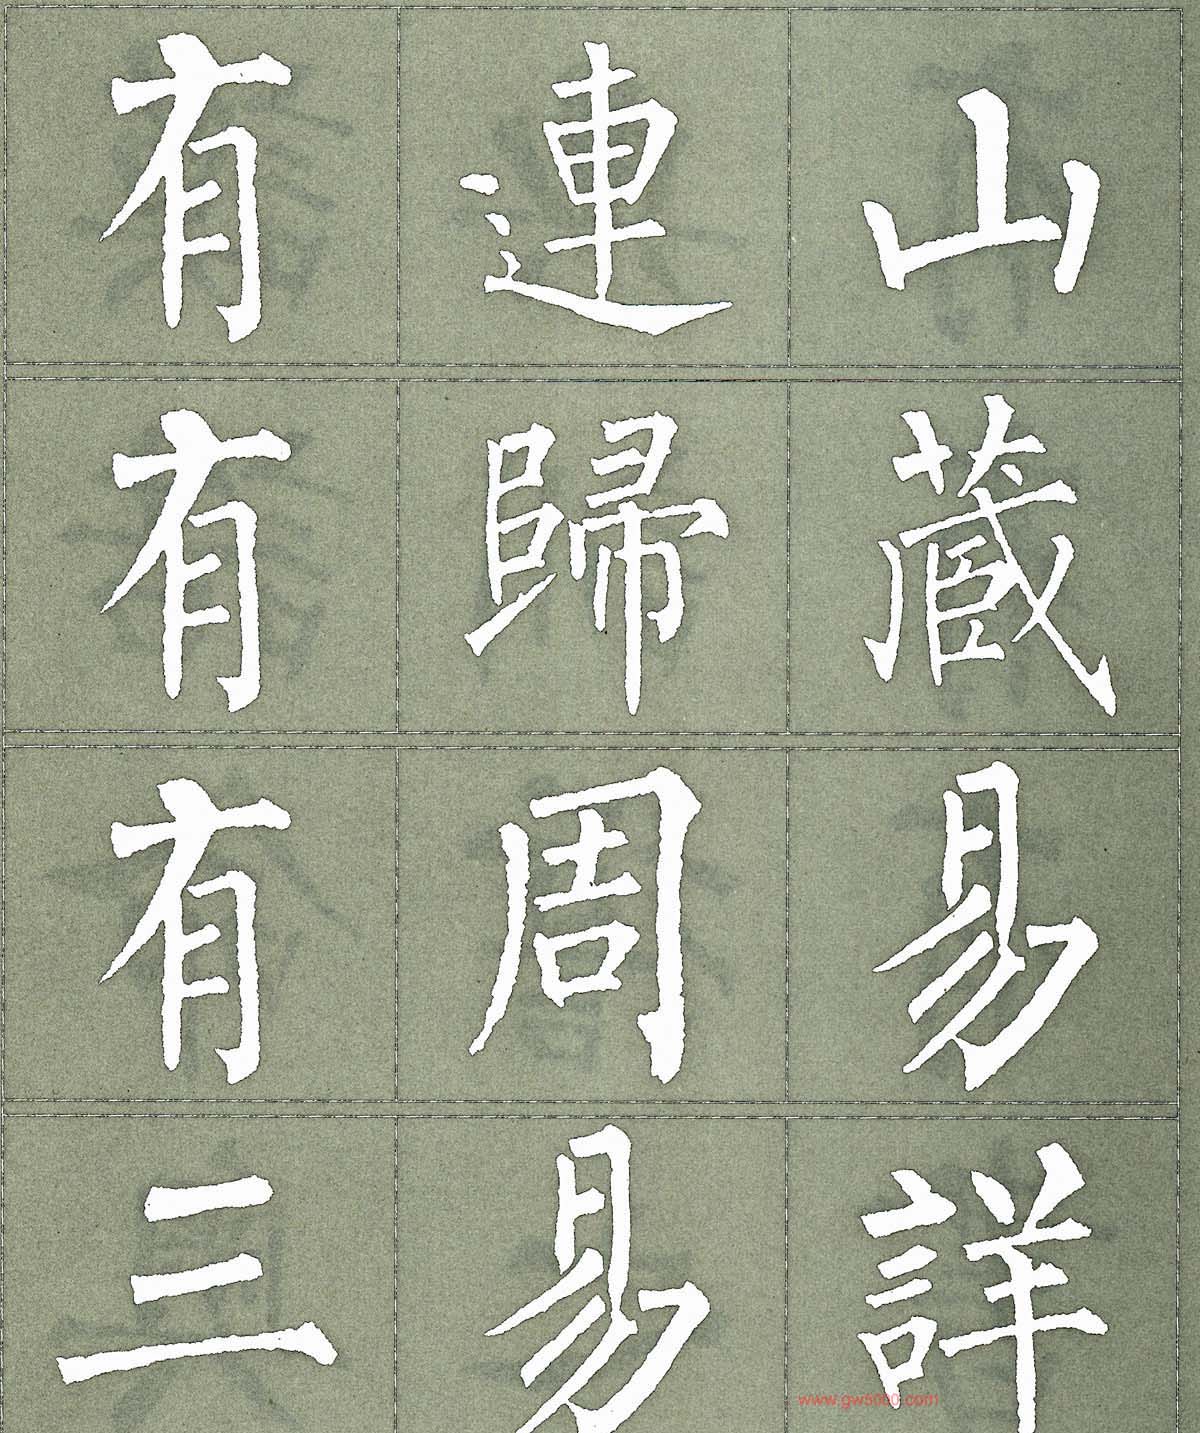 有連山
有歸藏
有周易
三易詳
www.gw5000.com